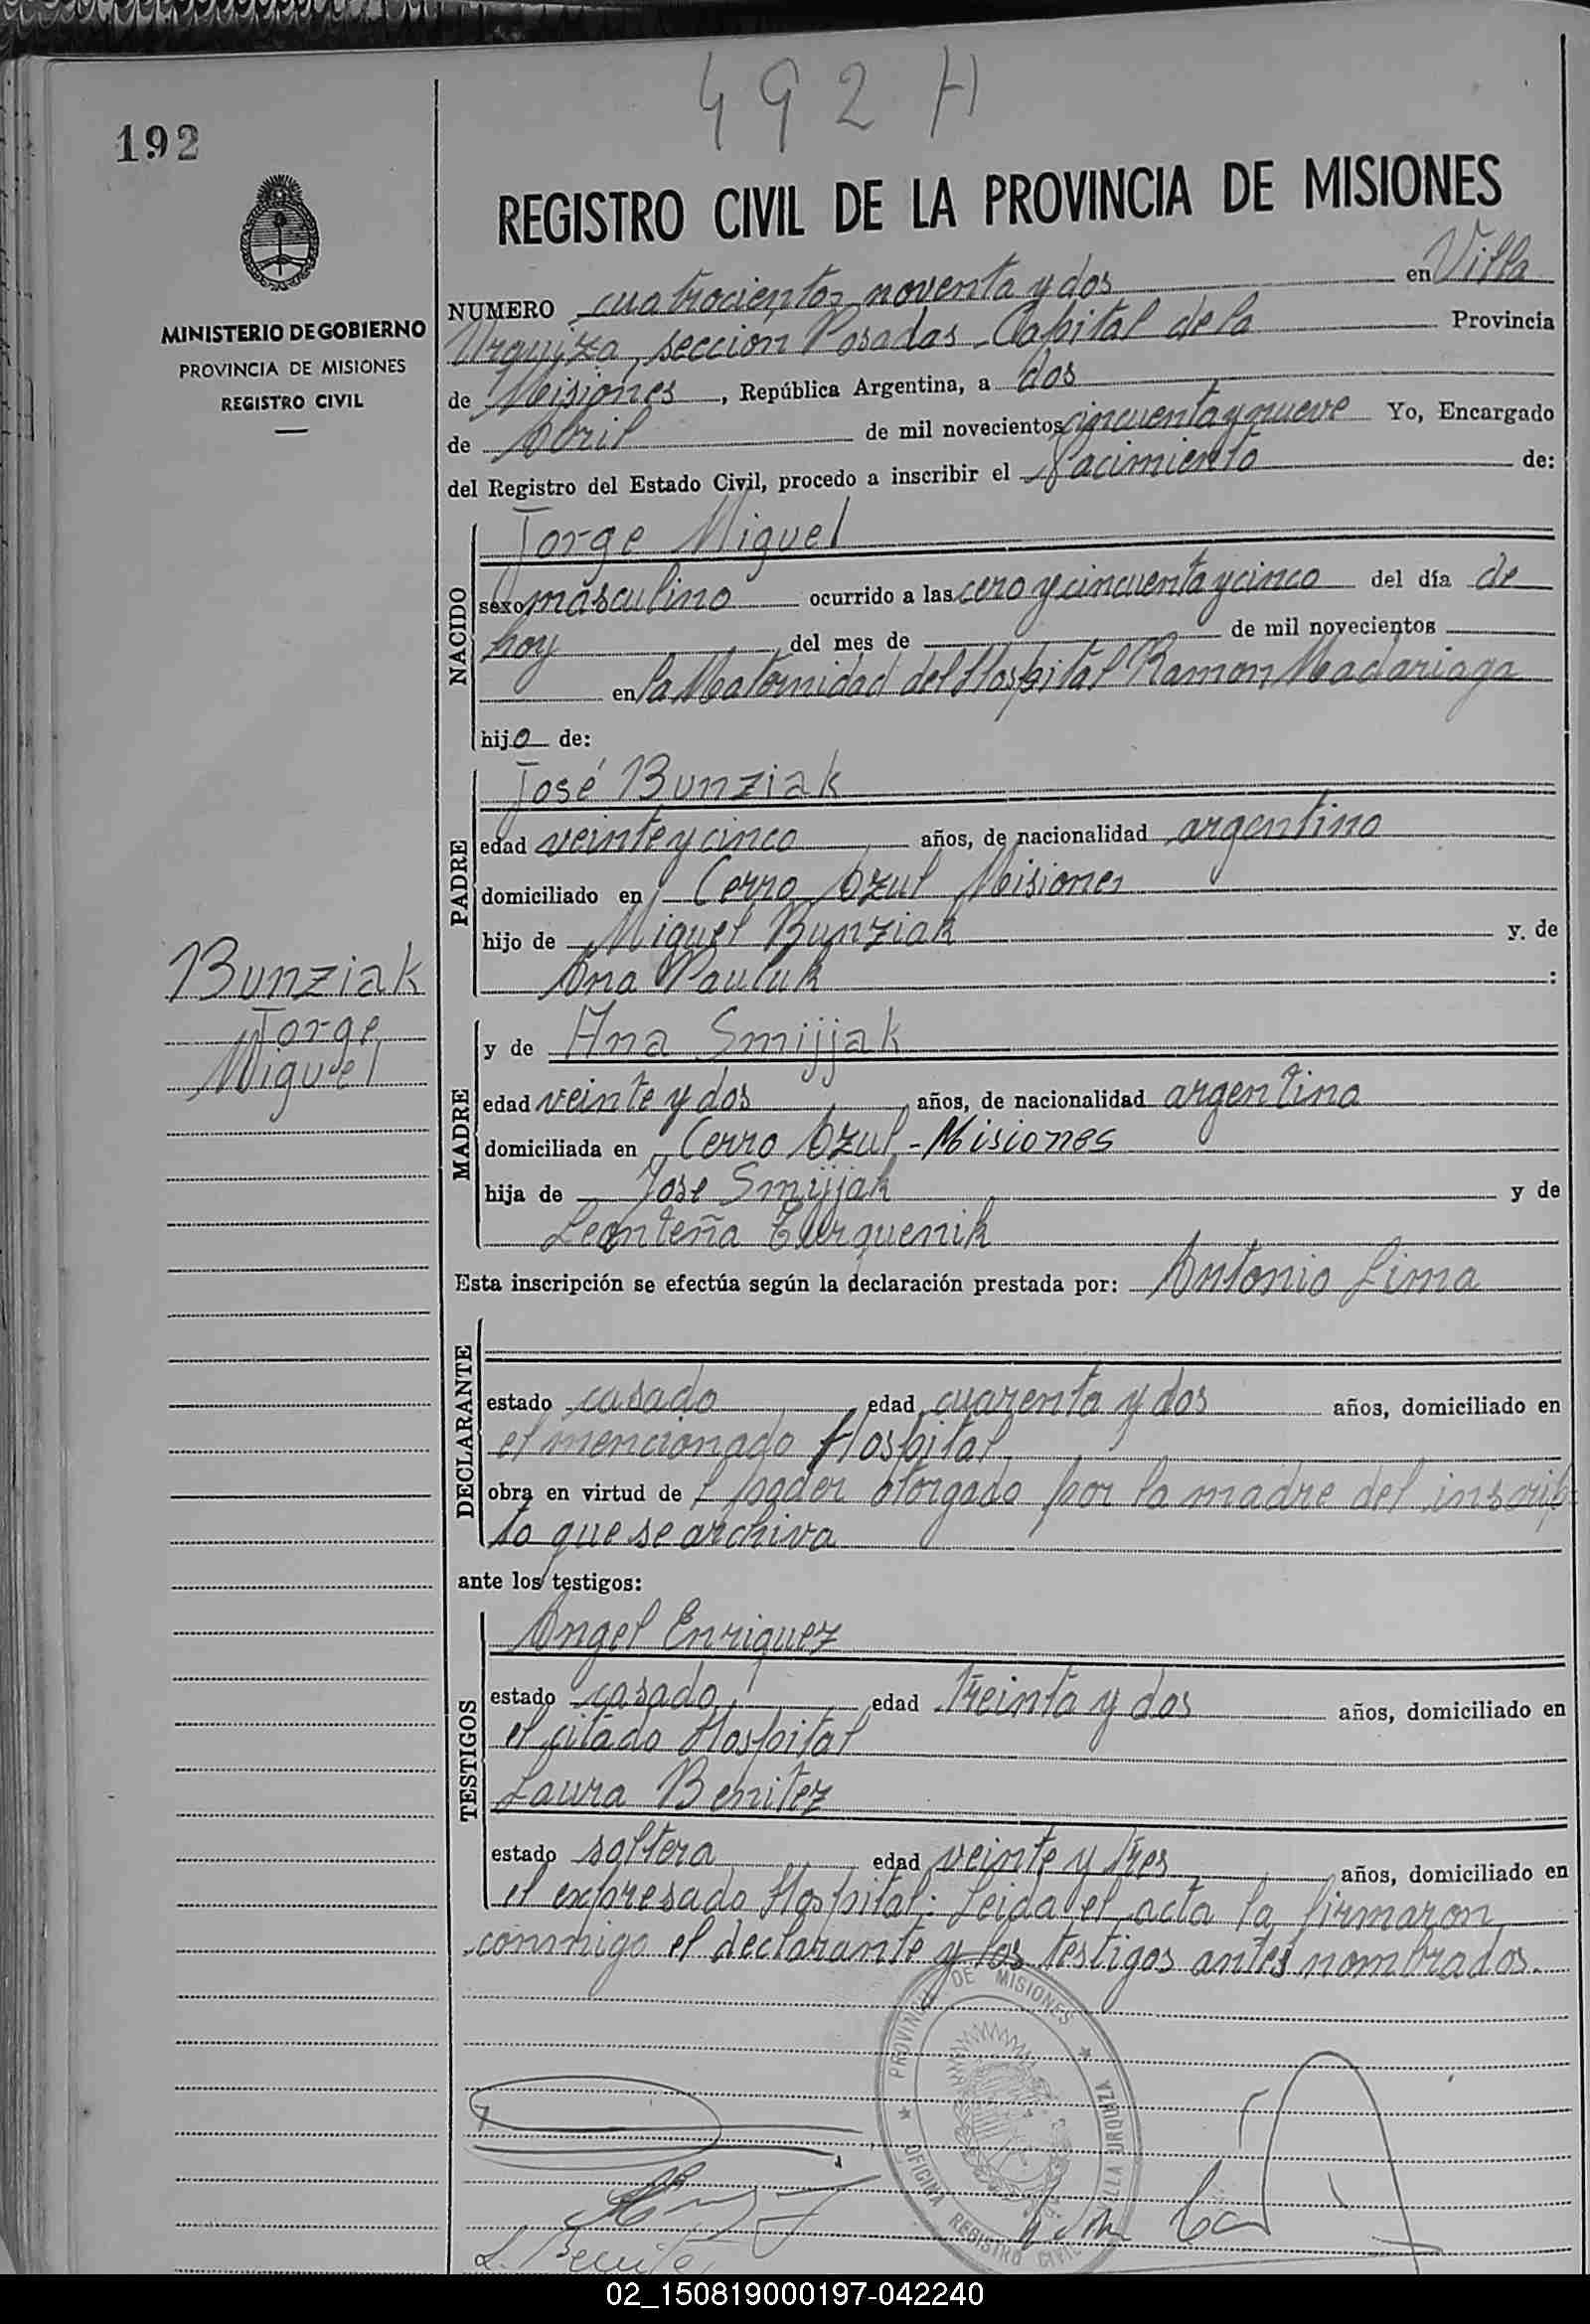 492 H
192
REGISTRO CIVIL DE LA PROVINCIA DE MISIONES
MINISTERIO DE GOBIERNO
PROVINCIA DE MISIONES
REGISTRO CIVIL
NUMERO cuatrocientos noventa y dos en Villa
Urquiza, sección Posadas - Capital de la Provincia
de Misiones, República Argentina, a dos
de Abril de mil novecientos cincuenta y nueve Yo, Encargado
del Registro del Estado Civil, procedo a inscribir el Nacimiento de:
NACIDO
Jorge Miguel
sexo masculino ocurrido a las cero y cincuenta y cinco del día de
hoy del mes de de mil novecientos
en la Maternidad del Hospital Ramon Madariaga
hijo de:
PADRE
José Bunziak
edad veinte y cinco años, de nacionalidad argentino
domiciliado en Cerro Azul Misiones
hijo de Miguel Bunziak y. de
Ana Pauluk :
Bunziak
Jorge
Miguel
MADRE
y de Ana Smijjak
edad veinte y dos años, de nacionalidad argentina
domiciliada en Cerro Azul - Misiones
hija de Jose Smijjak y de
Leonteña Turquenik
Esta inscripción se efectúa según la declaración prestada por: Antonio Lima
DECLARANTE
estado casado edad cuarenta y dos años, domiciliado en
el mencionado Hospital
obra en virtud de l poder otorgado por la madre del inscrip
to que se archiva
ante los testigos:
TESTIGOS
Angel Enriquez
estado casado edad treinta y dos años, domiciliado en
el citado Hospital
Laura Benitez
estado soltera edad veinte y tres años, domiciliado en
el expresado Hospital: Leida el acta la firmaron
conmigo el declarante y los testigos antes nombrados.
PROVINCIA DE MISIONES
OFICINA REGISTRO CIVIL VILLA URQUIZA
L. Benitez
02_150819000197-042240